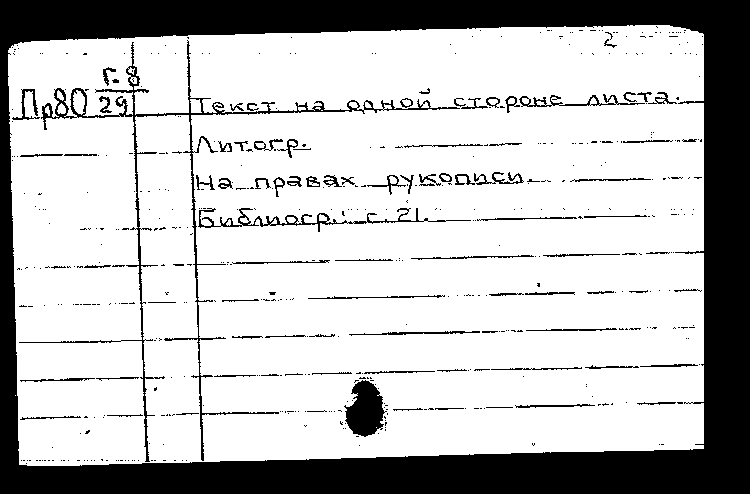 2
Пр80 Г-8/29
Текст на одной стороне листа.
Литогр.
На правах рукописи.
Библиогр.: с. 21.